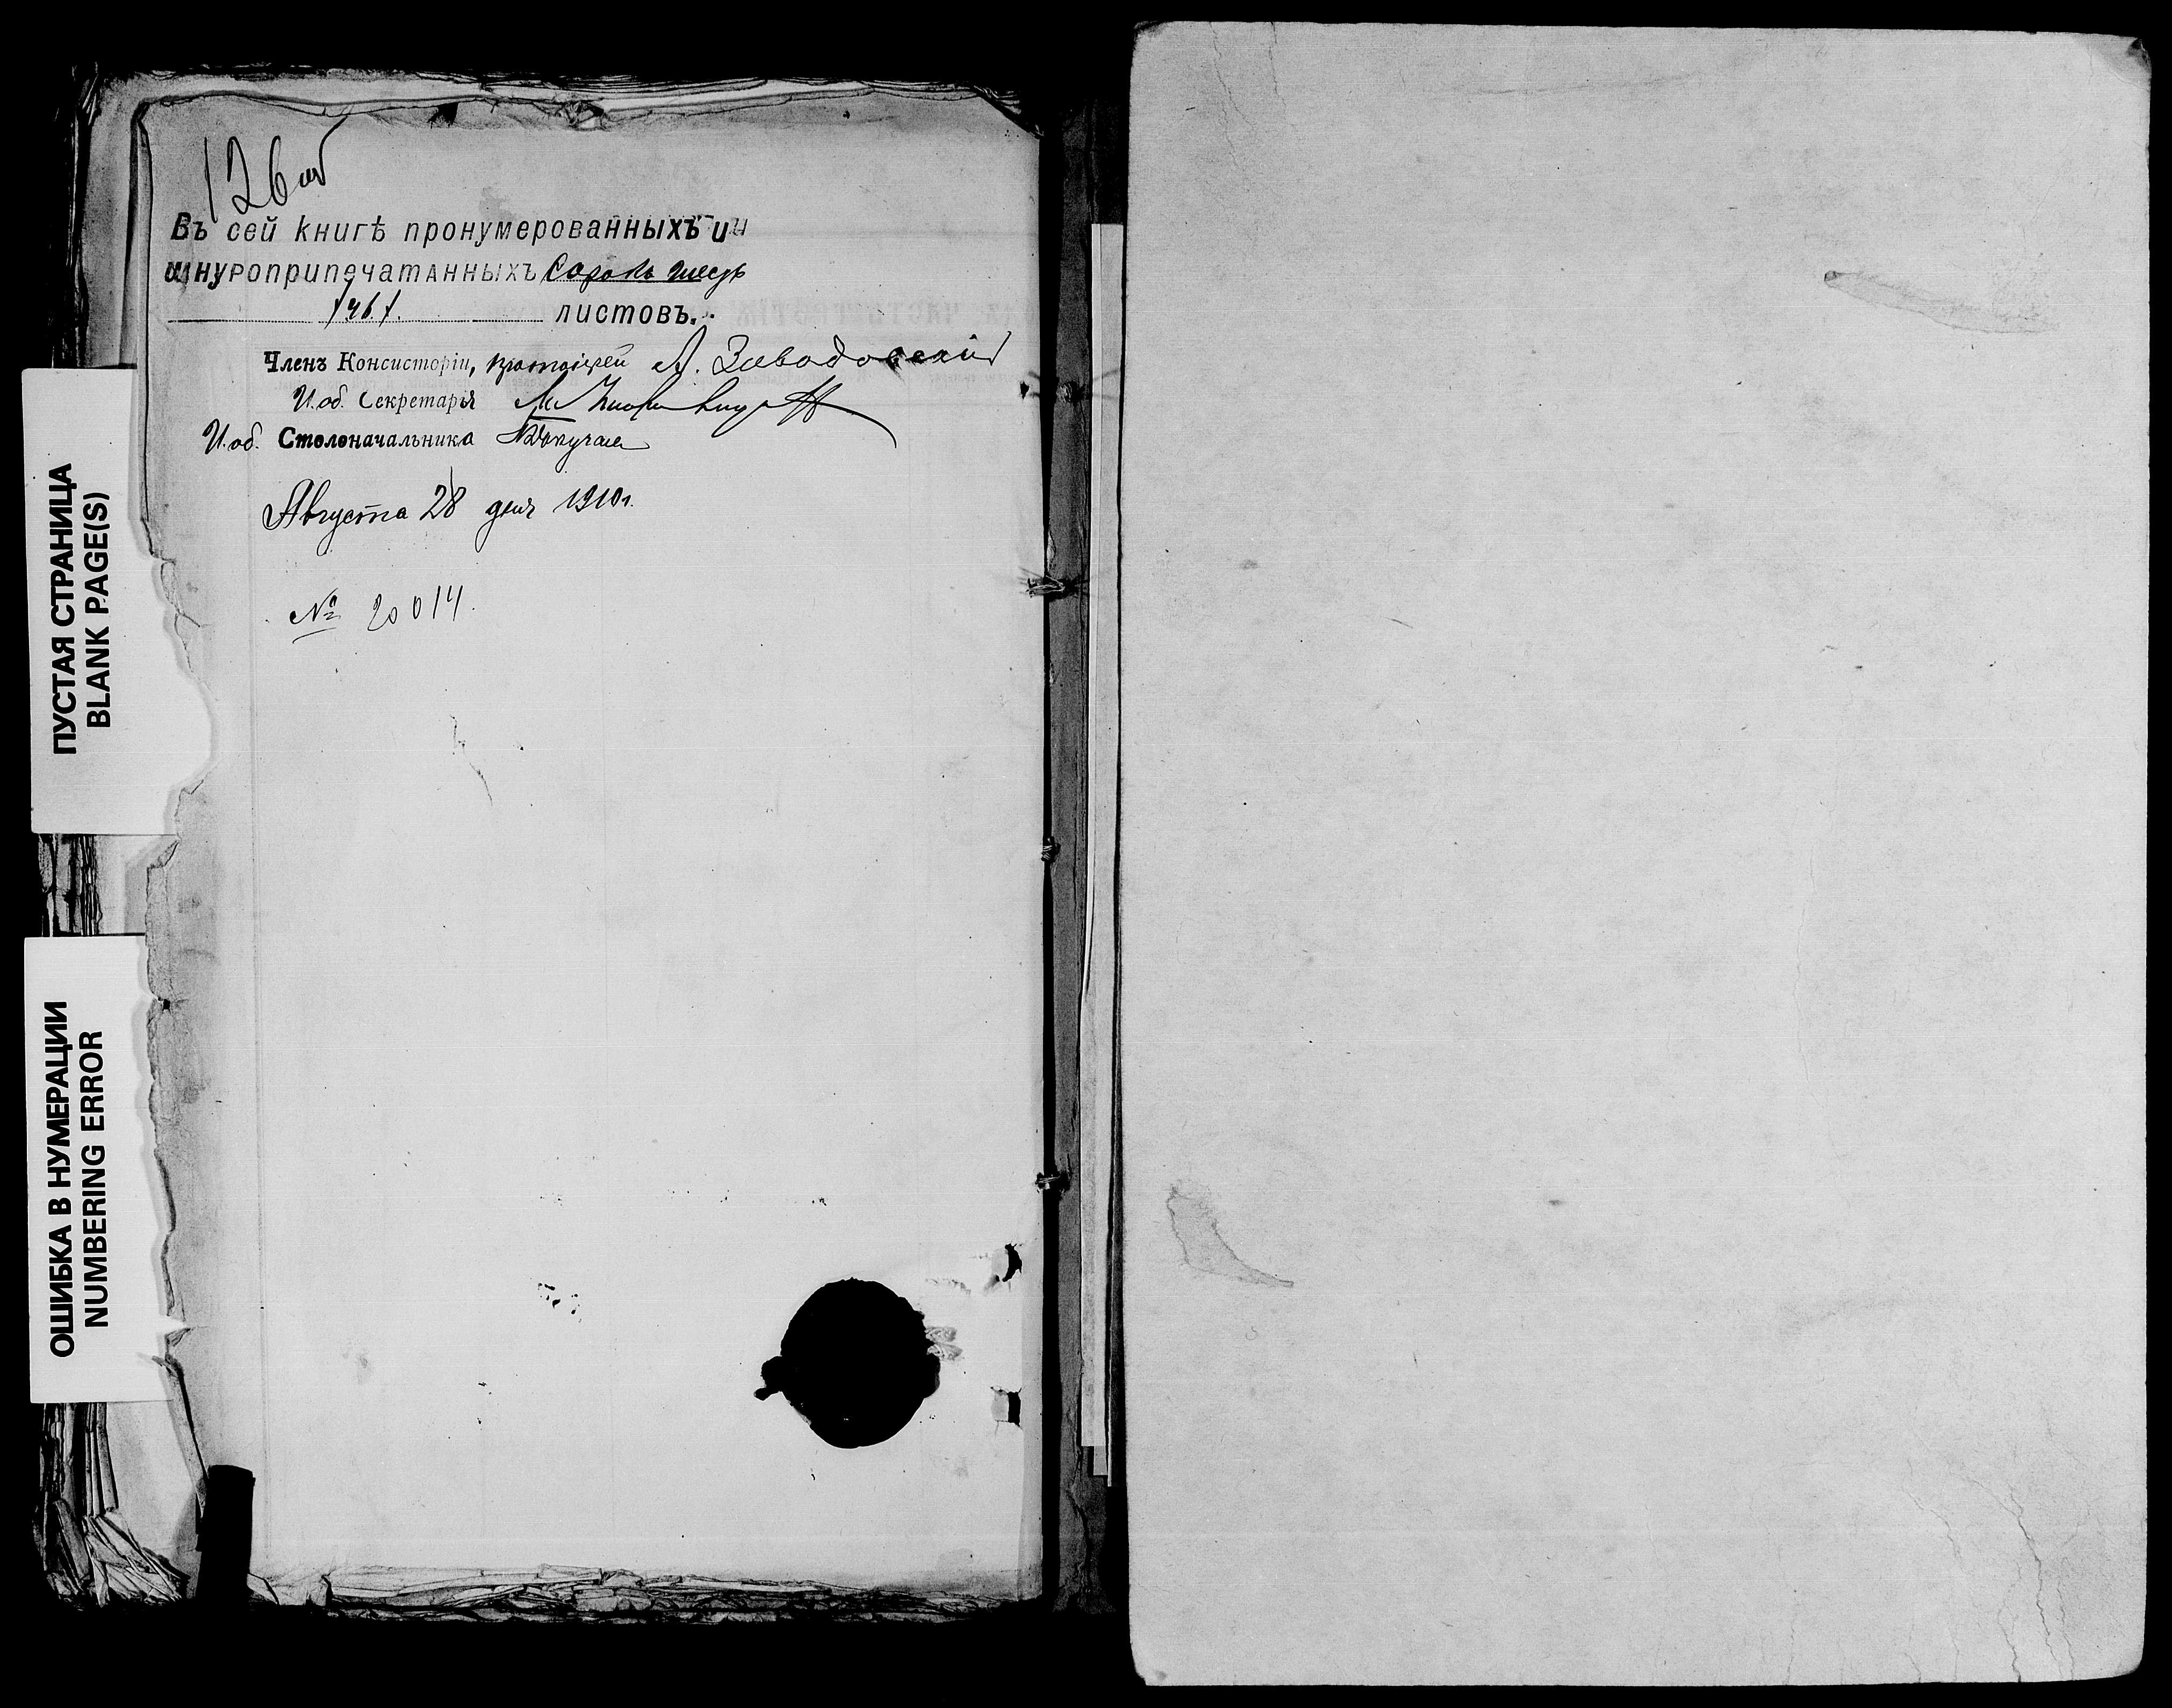 126 об
Въ сей книгѣ пронумерованныхъ и
шнуроприпечатанныхъ Сорокъ шесть
/46/. листовъ.
Членъ Консисторіи, протоіерей А. Заводовскій
И. об. Секретаря
И. об. Столоначальника
Августа 28 дня 1910 г.
№ 20014.
ПУСТАЯ СТРАНИЦА
BLANK PAGE(S)
ОШИБКА В НУМЕРАЦИИ
NUMBERING ERROR